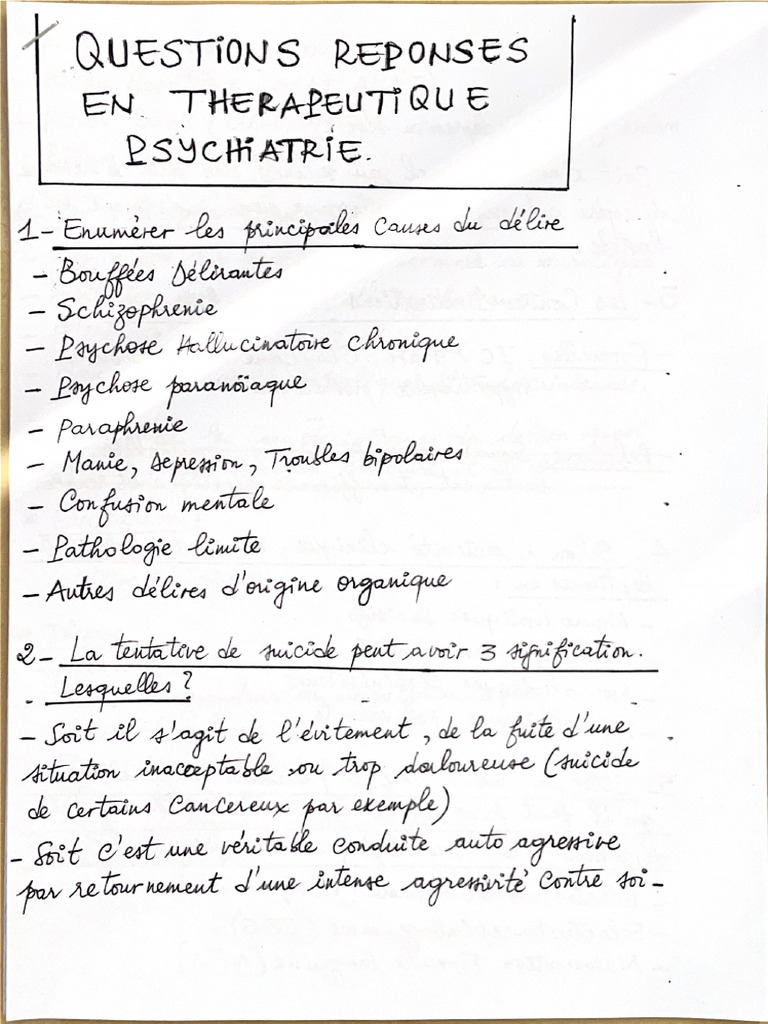 QUESTIONS REPONSES
EN THERAPEUTIQUE
PSYCHIATRIE.
1- Enumérer les principales causes du délire
- Bouffées Délirantes
- Schizophrenie
- Psychose Hallucinatoire chronique
- Psychose paranoïaque
- Paraphrenie
- Manie, Depression, Troubles bipolaires
- Confusion mentale
- Pathologie limite
- Autres délires d'origine organique
2- La tentative de suicide peut avoir 3 signification.
Lesquelles ?
- Soit il s'agit de l'évitement, de la fuite d'une
situation inacceptable ou trop douloureuse (suicide
de certains Cancereux par exemple)
- Soit c'est une véritable conduite auto agressive
par retournement d'une intense agressivité contre soi-